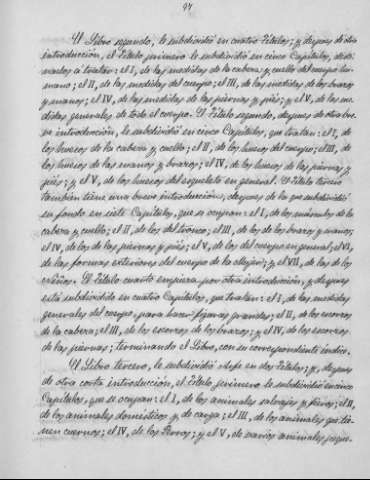 97
El Libro segundo, le subdividió en cuatro Títulos; y despues de otra
introducción, el Título primero le subdividió en cinco Capítulos, desti-
nados a tratar: el I, de las medidas de la cabeza y cuello del cuerpo hu-
mano; el II, de las medidas del cuerpo; el III, de las medidas de los brazos
y manos; el IV, de las medidas de las piernas y piés; y el V, de las me-
didas generales de todo el cuerpo. El Título segundo, despues de otra bre-
ve introducción, le subdividió en cinco Capítulos, que tratan: el I, de
los huesos de la cabeza y cuello; el II, de los huesos del cuerpo; el III, de
los huesos de las manos y brazos; el IV, de los huesos de las piernas y
piés; y el V, de los huesos del esqueleto en general. El Título tercero
tambien tiene una breve introducción, despues de la que subdividió
su fondo en siete Capítulos, que se ocupan: el I, de los músculos de la
cabeza y cuello; el II, de los del tronco; el III, de los de los brazos y manos;
el IV, de los de las piernas y piés; el V, de los del cuerpo en general; el VI,
de las formas exteriores del cuerpo de la mujer; y el VII, de las de los
niños. El Título cuarto empieza por otra introducción, y despues
está subdividido en cuatro Capítulos, que tratan: el I, de las medidas
generales del cuerpo, para hacer figuras grandes; el II, de los escorzos
de la cabeza; el III, de los escorzos de los brazos; y el IV, de los escorzos
de las piernas; terminando el Libro, con su correspondiente índice.
El Libro tercero, le subdividió Arfe en dos Títulos; y, despues
de otra corta introducción, el Título primero le subdividió en cinco
Capítulos, que se ocupan: el I, de los animales salvajes y fieros; el II,
de los animales domésticos y de carga; el III, de los animales que tie-
nen cuernos; el IV, de los Perros; y el V, de varios animales peque-